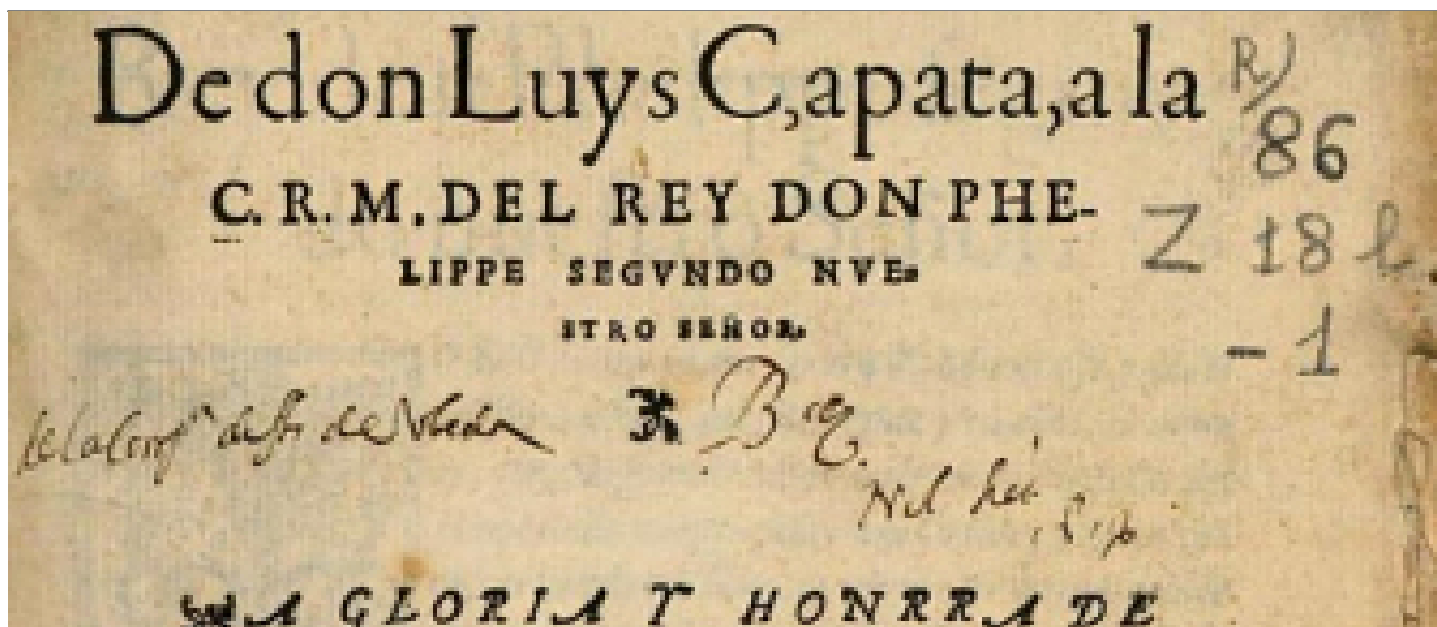 De don Luys C,apata,a la
R/
86
C. R. M. DEL REY DON PHE-
Z 18
LIPPE SEGVNDO NVE-
STRO SEÑOR.
- 1
de la de
A GLORIA Y HONRRA DE